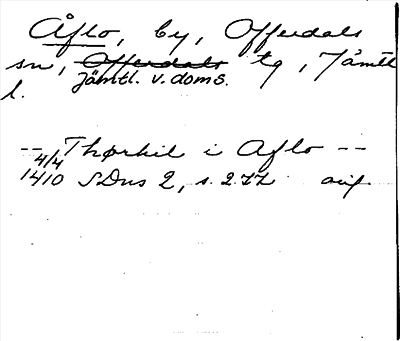 Åflo, by, Offerdals
sn, Offerdals tg, Jämtl
Jämtl. v. doms.
l.
-- Thørkil i Aflo --
4/4
1410 SDns 2, s. 277 avs